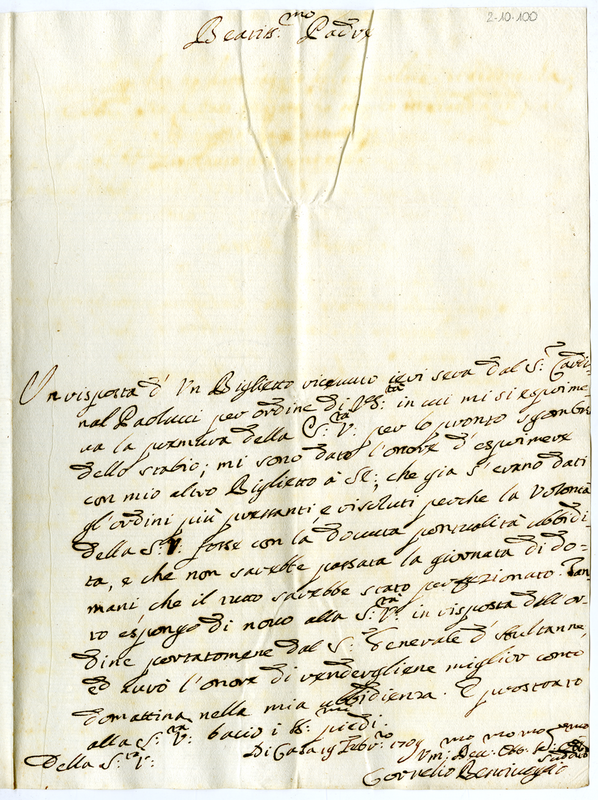 2-10-100
Beatis.mo Padre
In risposta d' Vn Biglietto riceuuto ieri sera dal S.r Cardi=
nal Paolucci per ordine di V. S.tà in cui mi si esprime=
ua la premura della S.tà V. per lo pronto sgombro
dello stabio; mi sono dato l'onore d'esprimere
con mio altro Biglietto à Sè, che già s'erano dati
gl'ordini più pressanti, e risoluti perche la Volontà
della S.tà V. fosse con la douuta pontualità Vbbidi=
ta, e che non sarebbe passata la giornata di do=
mani che il tutto sarebbe stato perfezionato. Tan=
to espongo di nouo alla S.tà V. in risposta dell'or=
dine portatomene dal S.r Generale
ed aurò l'onore di rendergliene miglior conto
domattina nella mia ubbidienza. E prostrato
alla S.tà V. bacio i S.mi piedi.
Di Casa 19 Febr.ro 1709
Della S.tà V.
Vm: Deu: Obb:
Cornelio Bentiuoglio